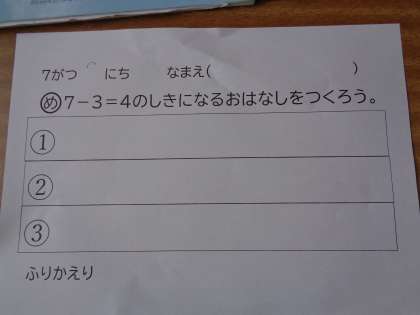 7がつ にち なまえ( )
め 7-3=4のしきになるおはなしをつくろう。
①
②
③
ふりかえり